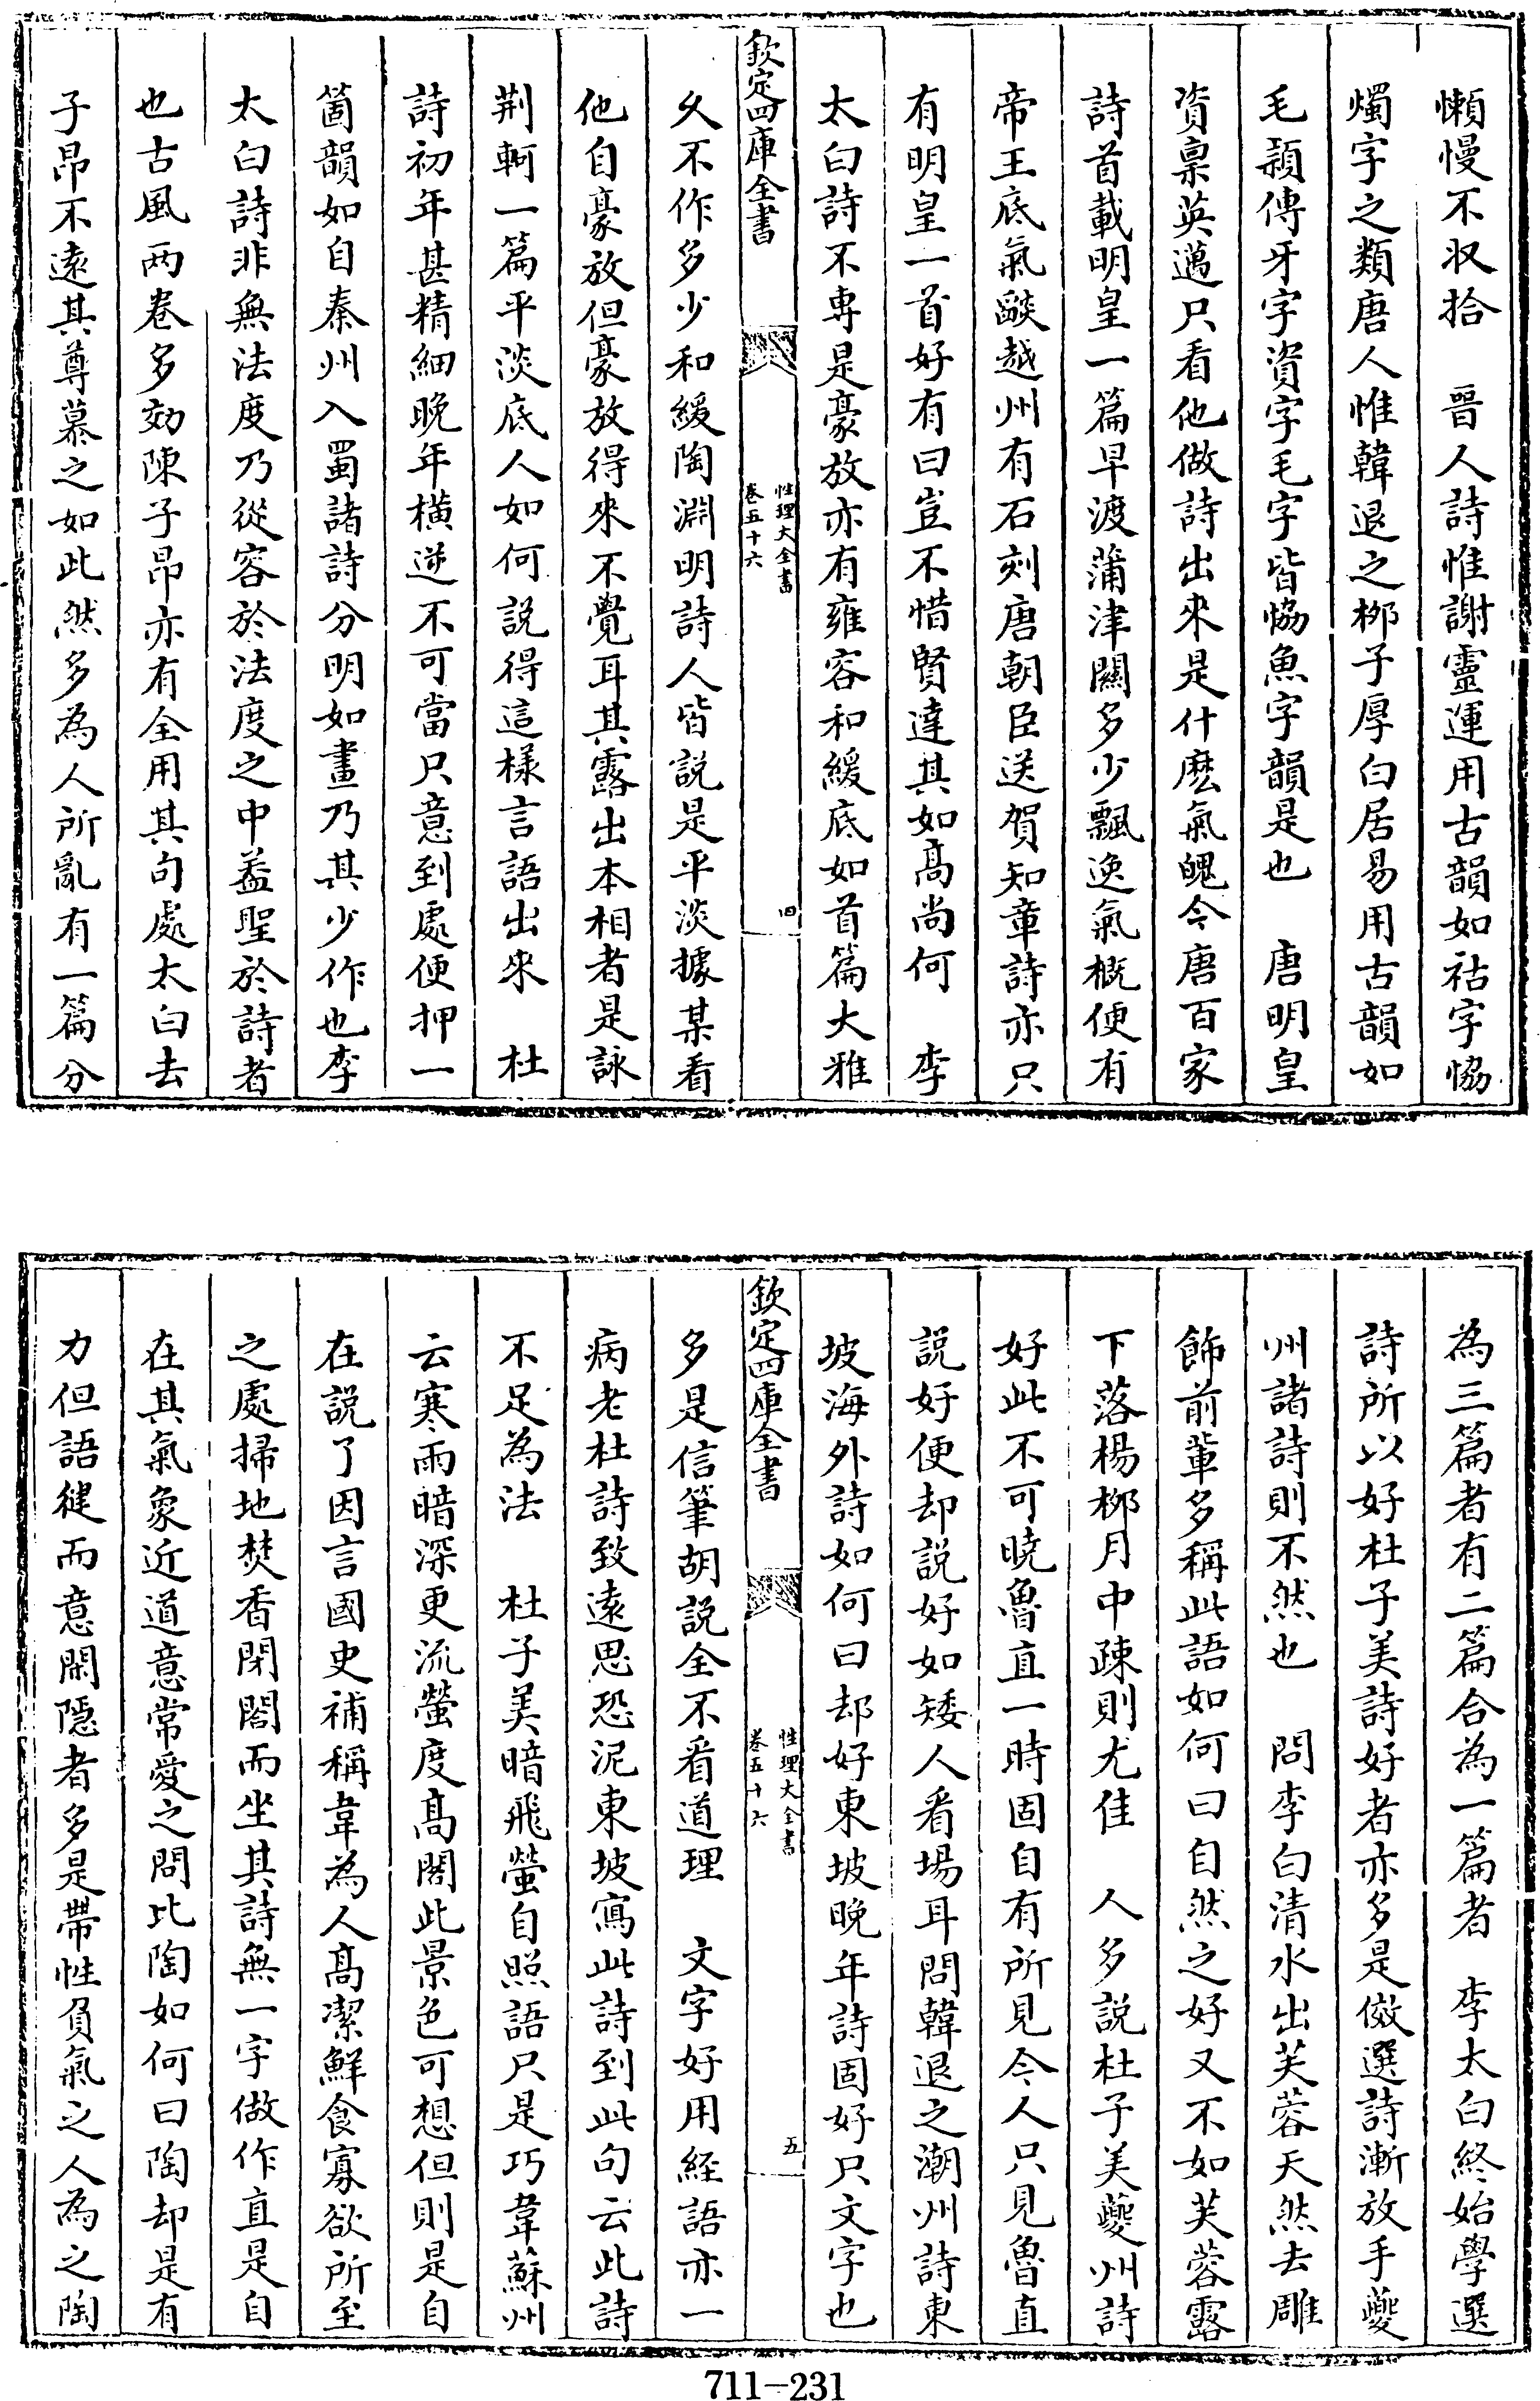 懶慢不収拾　晉人詩惟謝靈運用古韻如祜字恊
燭字之類唐人惟韓退之栁子厚白居易用古韻如
毛穎傳牙字資字毛字皆恊魚字韻是也　唐明皇
資稟英邁只看他做詩出來是什麽氣魄今唐百家
詩首載明皇一篇早渡蒲津闗多少飄逸氣概便有
帝王底氣燄越州有石刻唐朝臣送賀知章詩亦只
有明皇一首好有曰豈不惜賢達其如髙尚何　李
太白詩不専是豪放亦有雍容和緩底如首篇大雅
欽定四庫全書
性理大全書
卷五十六
四
乆不作多少和緩陶淵明詩人皆説是平淡據某看
他自豪放但豪放得來不覺耳其露出本相者是詠
荆軻一篇平淡底人如何説得這様言語出來　杜
詩初年甚精細晚年横逆不可當只意到處便押一
箇韻如自秦州入蜀諸詩分明如畫乃其少作也李
太白詩非無法度乃從容於法度之中葢聖於詩者
也古風两卷多効陳子昂亦有全用其句處太白去
子昂不逺其尊慕之如此然多為人所亂有一篇分
為三篇者有二篇合為一篇者　李太白終始學選
詩所以好杜子美詩好者亦多是傚選詩漸放手夔
州諸詩則不然也　問李白清水出芙蓉天然去雕
飾前軰多稱此語如何曰自然之好又不如芙蓉露
下落楊栁月中疎則尤佳　人多説杜子美夔州詩
好此不可曉魯直一時固自有所見今人只見魯直
説好便却説好如矮人㸔場耳問韓退之潮州詩東
坡海外詩如何曰却好東坡晚年詩固好只文字也
欽定四庫全書
性理大全書
卷五十六
五
多是信筆胡説全不㸔道理　文字好用經語亦一
病老杜詩致逺思恐泥東坡寫此詩到此句云此詩
不足為法　杜子美暗飛螢自照語只是巧韋蘇州
云寒雨暗深更流螢度髙閣此景色可想但則是自
在説了因言國史補稱韋為人髙潔鮮食寡欲所至
之處掃地焚香閉閣而坐其詩無一字做作直是自
在其氣象近道意常愛之問比陶如何曰陶却是有
力但語徤而意閑隠者多是帶性負氣之人為之陶
711-231